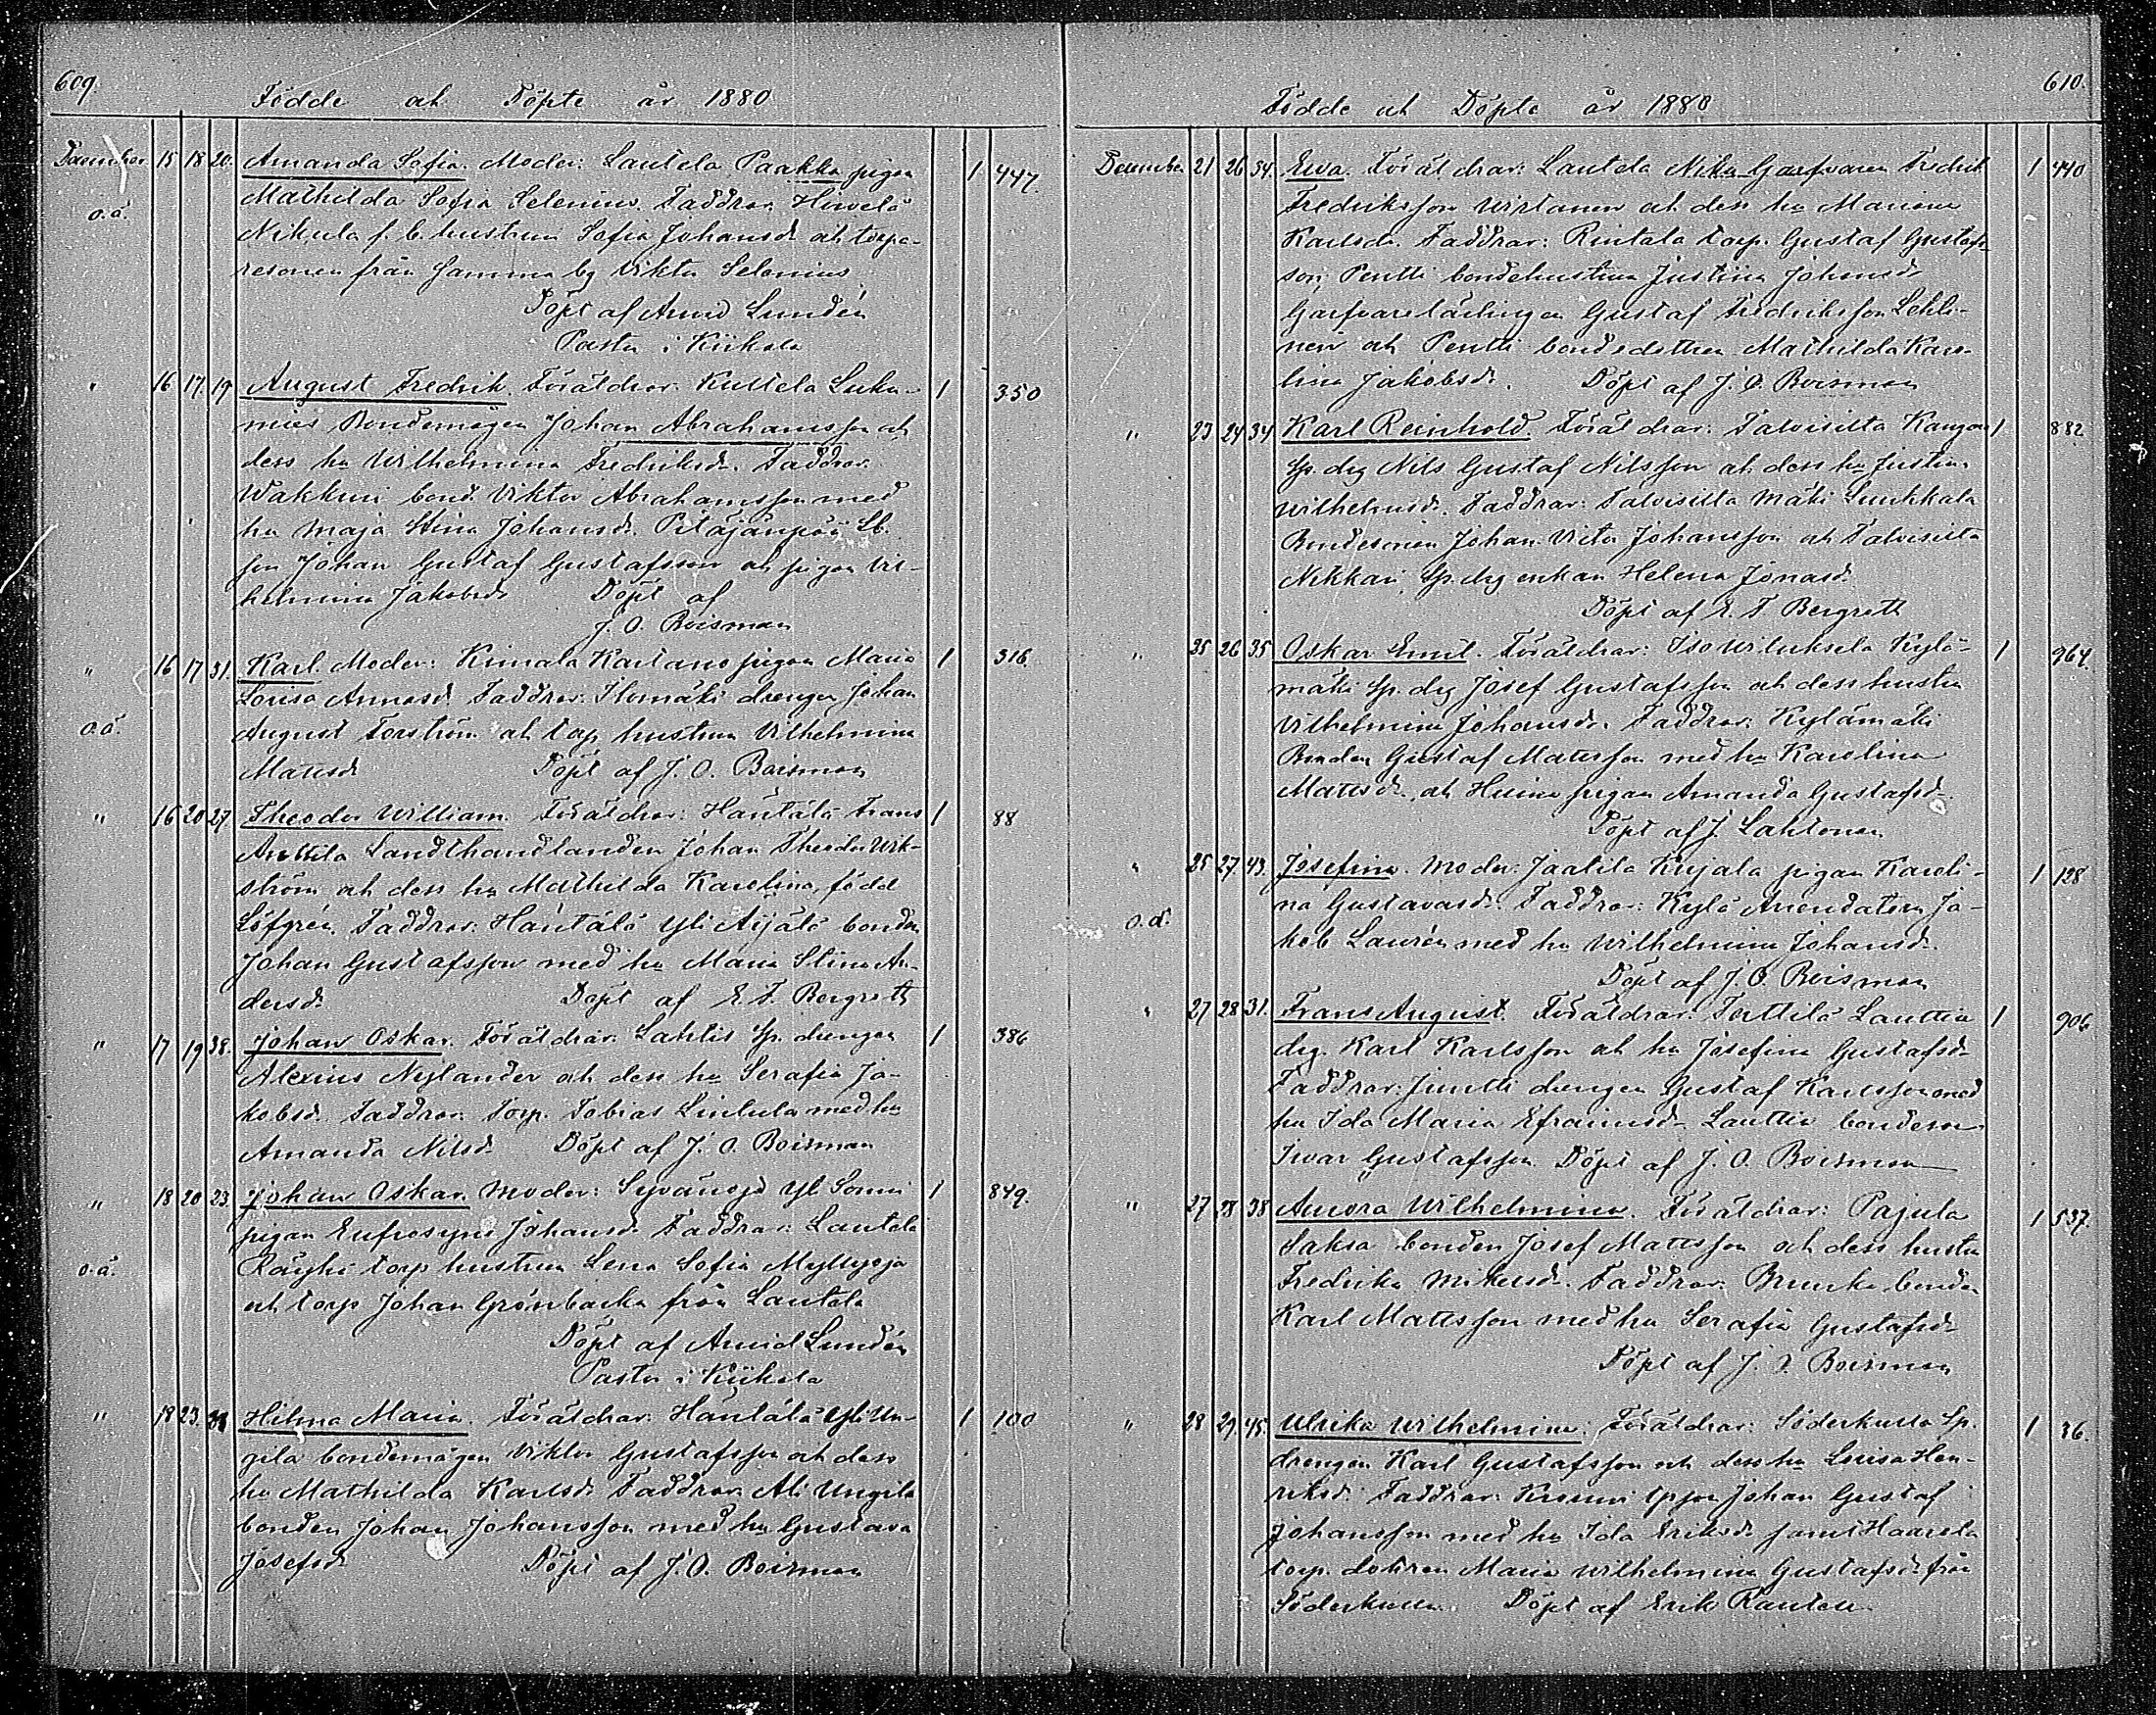 609.
Födde och Döpte år 1880
December 15 18 20. Amanda Sofia. Moder: Lautela Paakka pigan 1 447.
o.ä. Mathilda Sofia Selenius. Faddrar: Howelä
Nikula f. b. hustrun Sofia Johansd. och torpa-
resonen från samma by Viktor Selenius
Döpt af Arvid Lundén
Pastor i Kiikala
" 16 17. 19 August Fredrik. Föräldrar: Kuttela Suku- 1 350
mies Bondemågen Johan Abrahamsson och
dess hu Wilhelmina Fredriksd. Faddrar:
Wakkuri bond. Viktor Abrahamsson med
hu Maja Stina Johansd. Pitäjänpää Lb.
son Johan Gustaf Gustafsson och pigan Vil-
helmina Jakobsd. Döpt af
J. O. Boisman
" 16 17 31. Karl. Moder: Kimala Kartano pigan Maria 1 316.
Lovisa Annasd. Faddrar: Ilomäki drengen Johan
o.ä. August Forström och torp. hustrun Vilhelmina
Matsd. Döpt af J. O. Boisman
" 16 20 27 Theodor William. Föräldrar: Häntälä Frans 1 88
Anttila Landthandlanden Johan Theodor Wik-
ström och dess hu Mathilda Karolina, född
Löfgrén. Faddrar: Häntälä Yli Äijälä bonden
Johan Gustafsson med hu Maria Stina An-
dersd. Döpt af E. F. Bergroth
" 17 19 38. Johan Oskar. Föräldrar: Lahtis Sp. drengen 1 386
Alexius Nylander och dess hu Serafia Ja-
kobsd. Faddrar: Torp. Tobias Linlula med hu
Amanda Nilsd. Döpt af J. O. Boisman
" 18 20 23 Johan Oskar. Moder: Syvänoja Yli Sonni 1 849.
pigan Eufrosyne Johansd. Faddrar: Lautela
o.ä. Räyhä torp hustrun Lena Sofia Myllyoja
och torp Johan Grönbacka från Lautela
Döpt af Arvid Lundén
Pastor i Kiikala
" 18 23. Hilma Maria. Föräldrar: Häntälä Yli Un- 1 100
gila bondemågen Viktor Gustafsson och dess
hu Mathilda Karlsd. Faddrar: Ali Ungila
bonden Johan Johansson med hu Gustava
Josefsd. Döpt af J. O. Boisman
610.
Födde och Döpte år 1880
December 21 26 34. Ewa. Föräldrar: Lautela Niku Garfvaren Fredrik 1 440
Fredriksson Wirtanen och dess hu Mariana
Karlsd. Faddrar: Rintala torp. Gustaf Gustafs-
son, Pentti bondehustrun Justiina Johansd.
Garfvarelärlingen Gustaf Fredriksson Lehti-
nen och Pentti bondedottren Mathilda Karo-
lina Jakobsd. Döpt af J. O. Boisman
" 23 24 34 Karl Reinhold. Föräldrar: Talvisilta Kangas 1 882
Sp. drg Nils Gustaf Nilsson och dess hu Justina
Wilhelmsd. Faddrar: Talvisilta Mäki Luukkala
Bondesonen Johan Victor Johansson och Talvisilta
Nikkari Sp. drg enkan Helena Jonasd.
Döpt af E. F. Bergroth
" 25 26 35 Oskar Emil. Föräldrar: Iso Wiluksela Kylä- 1 964.
mäki Sp. drg Josef Gustafsson och dess hustru
Vilhelmina Johansd. Faddrar: Kylämäki
Bonden Gustaf Matsson med hu Karolina
Matsd. och Heino pigan Amanda Gustafsd.
Döpt af J. Lahtonen
" 25 27. 43. Josefina. Moder: Jaatila Kujala pigan Karoli- 1 128
o.ä. na Gustavasd. Faddrar: Kylä Arendatorn Ja-
kob Laurén med hu Wilhelmina Johansd.
Döpt af J. O. Boisman
" 27 28 31. Frans August. Föräldrar: Terttilä Lauttia 1 906
drg. Karl Karlsson och hu Josefina Gustafsd.
Faddrar: Juntti drengen Gustaf Karlsson med
hu Ida Maria Efraimsd. Lauttia bondeson
Iwar Gustafsson. Döpt af J. O. Boisman
" 27 28 38 Aurora Wilhelmina. Föräldrar: Pajula 1 537.
Saksa bonden Josef Matsson och dess hustru
Fredrika Mikelsd. Faddrar: bonden
Karl Matsson med hu Serafia Gustafsd.
Döpt af J. O. Boisman
" 28 29. 45. Ulrika Wilhelmina. Föräldrar: Söderkulla Sp. 1 36.
drengen Karl Gustafsson och dess hu Lovisa Hen-
riksd. Faddrar: Johan Gustaf
Johansson med hu Ida Eriksd. samt Haarla
torp. dottren Maria Wilhelmina Gustafsd. från
Söderkulla. Döpt af Erik Rautell